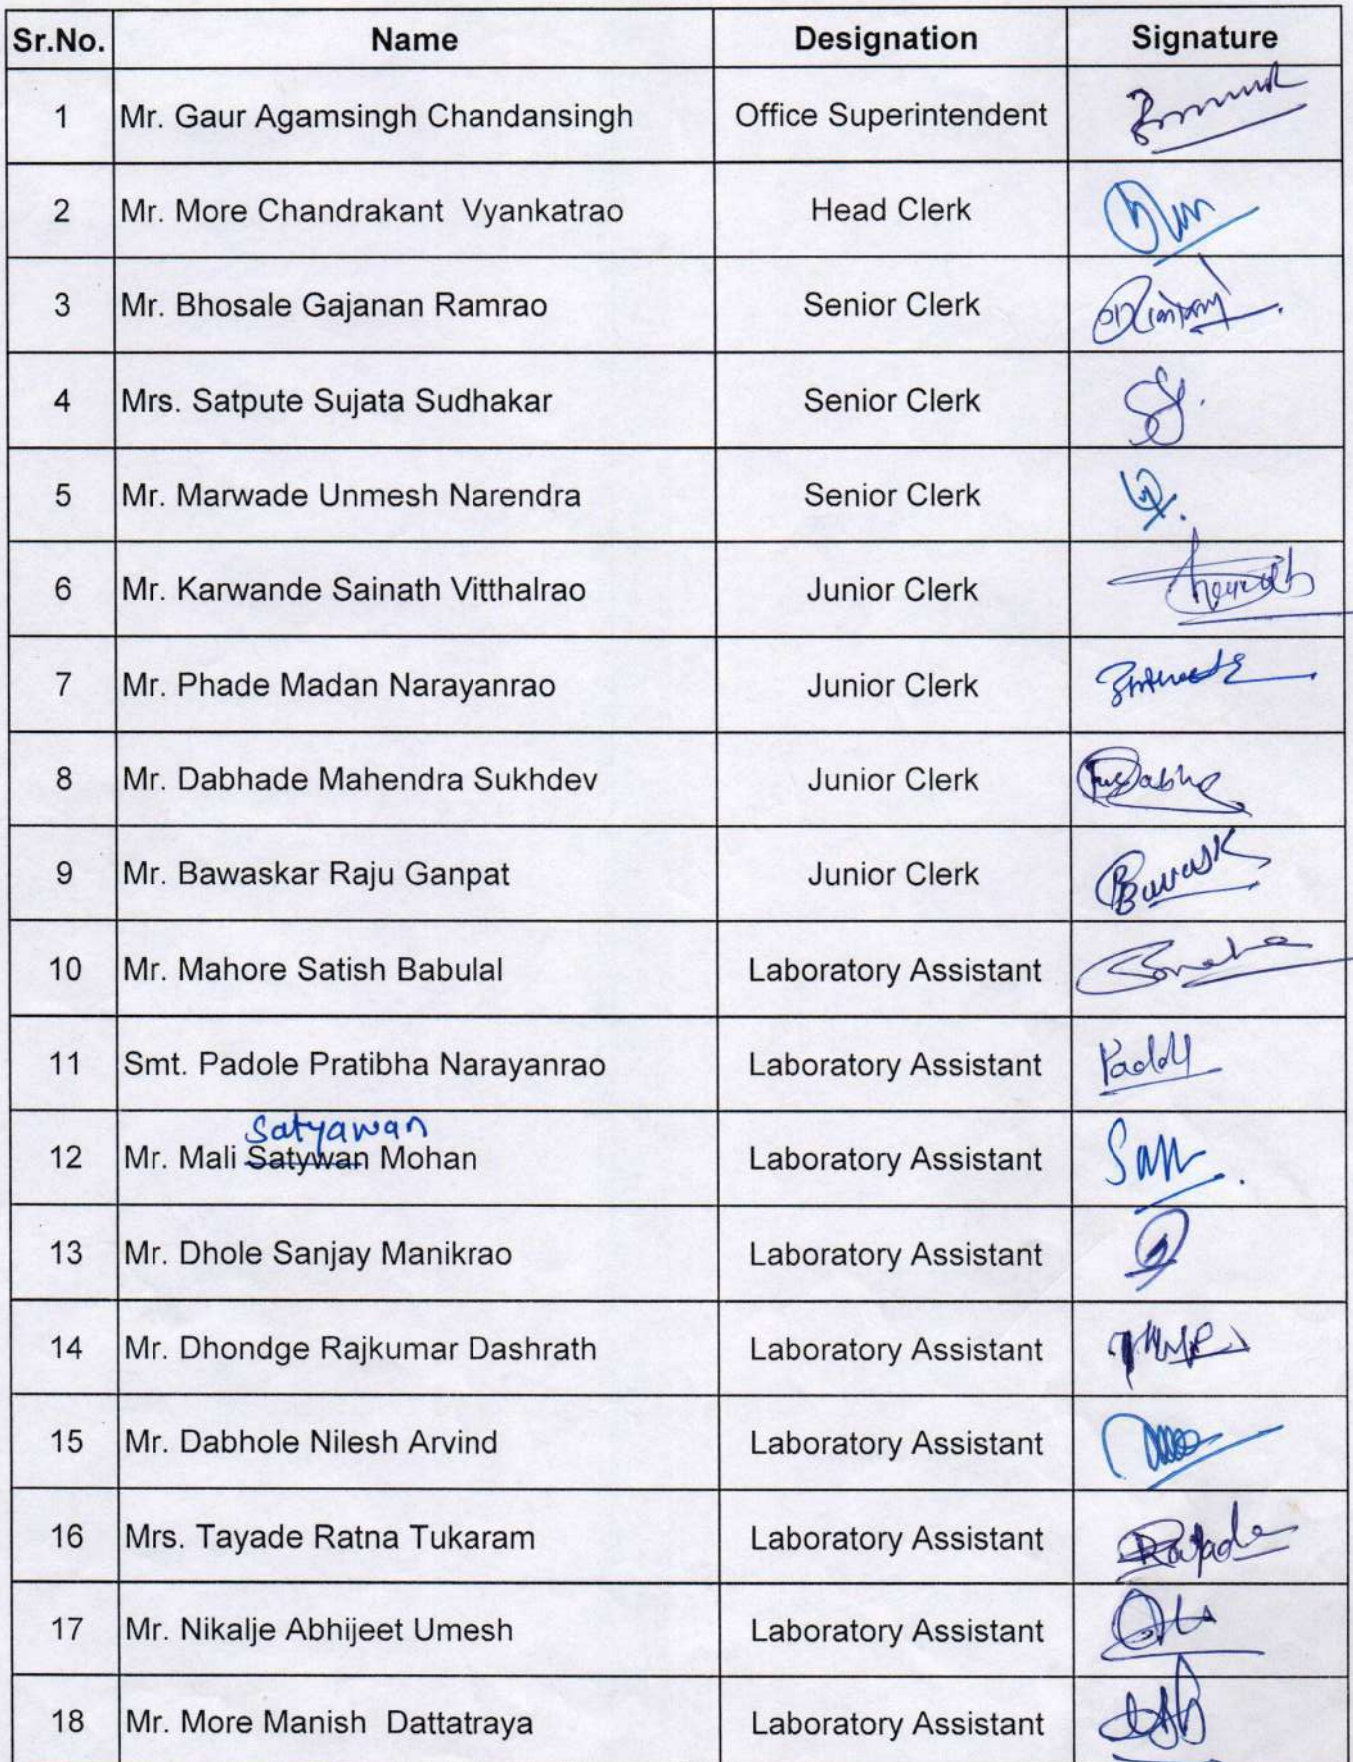 Sr.No. Name Designation Signature
1 Mr. Gaur Agamsingh Chandansingh Office Superintendent
2 Mr. More Chandrakant Vyankatrao Head Clerk
3 Mr. Bhosale Gajanan Ramrao Senior Clerk
4 Mrs. Satpute Sujata Sudhakar Senior Clerk
5 Mr. Marwade Unmesh Narendra Senior Clerk
6 Mr. Karwande Sainath Vitthalrao Junior Clerk
7 Mr. Phade Madan Narayanrao Junior Clerk
8 Mr. Dabhade Mahendra Sukhdev Junior Clerk
9 Mr. Bawaskar Raju Ganpat Junior Clerk
10 Mr. Mahore Satish Babulal Laboratory Assistant
11 Smt. Padole Pratibha Narayanrao Laboratory Assistant
Satyawan
12 Mr. Mali Satywan Mohan Laboratory Assistant
13 Mr. Dhole Sanjay Manikrao Laboratory Assistant
14 Mr. Dhondge Rajkumar Dashrath Laboratory Assistant
15 Mr. Dabhole Nilesh Arvind Laboratory Assistant
16 Mrs. Tayade Ratna Tukaram Laboratory Assistant
17 Mr. Nikalje Abhijeet Umesh Laboratory Assistant
18 Mr. More Manish Dattatraya Laboratory Assistant